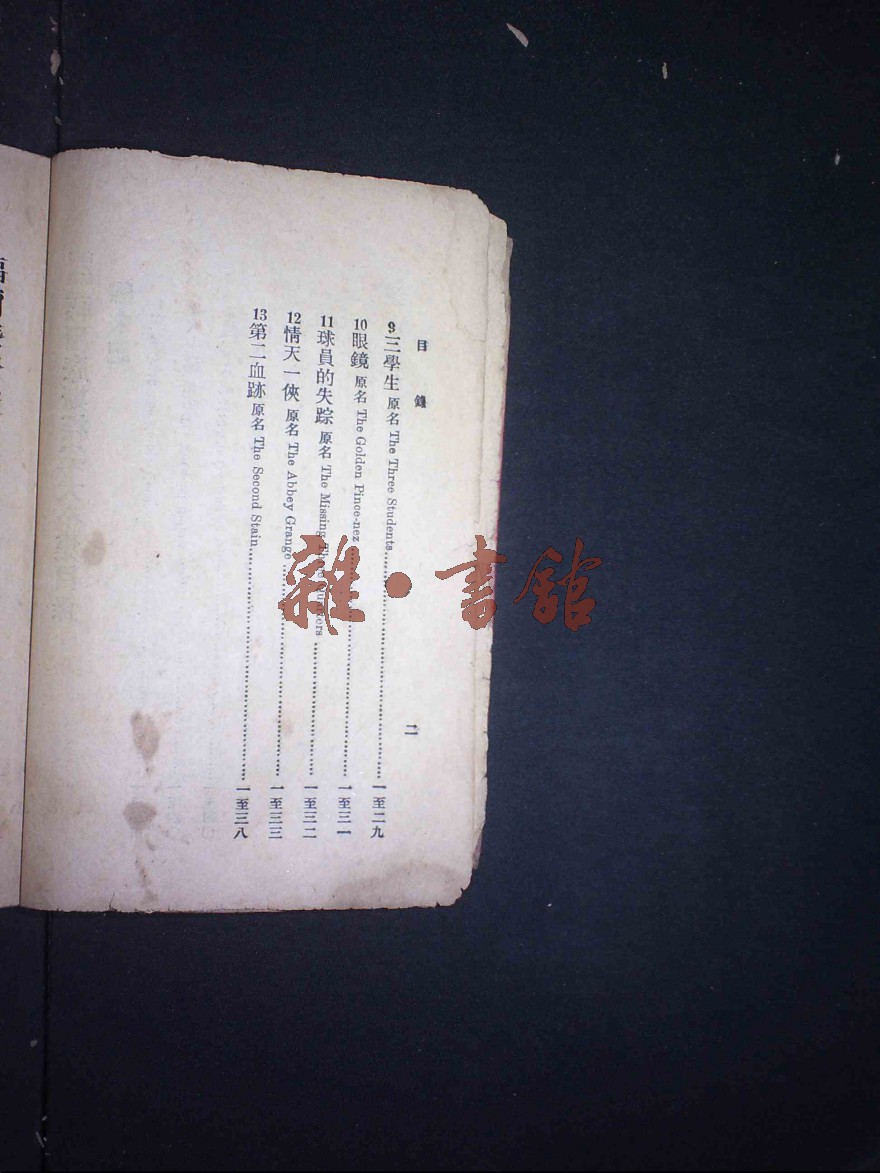 目錄
9 三學生 原名 The Three Students 一至二九
10 眼鏡 原名 The Golden Pince-nez 一至三一
11 球員的失踪 原名 The Missing Three-Quarters 一至三二
12 情天一俠 原名 The Abbey Grange 一至三三
13 第二血跡 原名 The Second Stain 一至三八
二
雜·書館